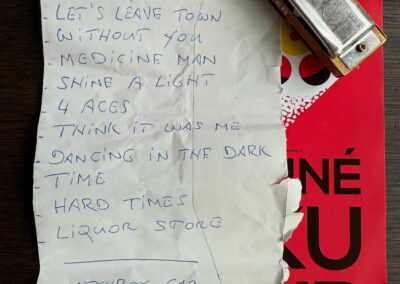 LET'S LEAVE TOWN
WITHOUT YOU
MEDICINE MAN
SHINE A LIGHT
4 ACES
THINK IT WAS ME
DANCING IN THE DARK
TIME
HARD TIMES
LIQUOR STORE
INÉ
KU